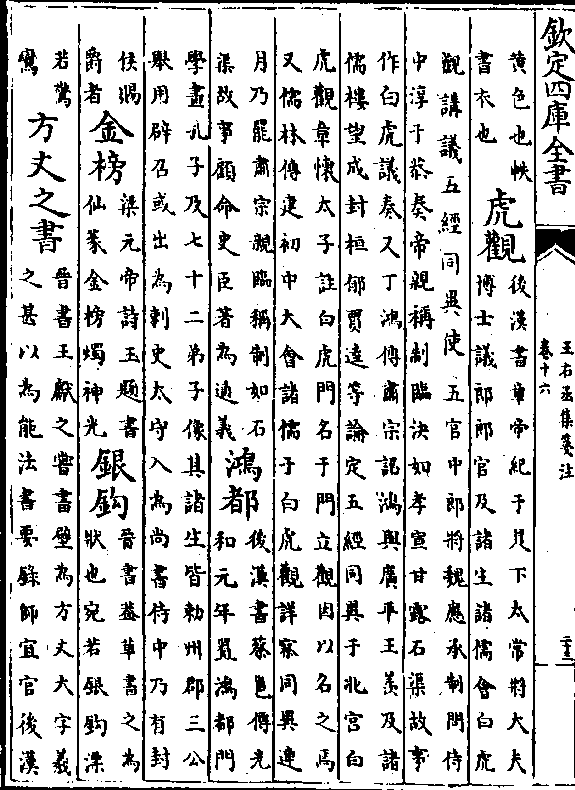 欽定四庫全書
王右丞集箋注
卷十六
二十三
黄色也帙
書衣也
虎觀
後漢書章帝紀于是下太常將大夫
博士議郎郎官及諸生諸儒會白虎
觀講議五經同異使五官中郎將魏應承制問侍
中淳于恭奏帝親稱制臨決如孝宣甘露石渠故事
作白虎議奏又丁鴻傳肅宗詔鴻與廣平王羡及諸
儒樓望成封桓郁賈逵等論定五經同異于北宮白
虎觀章懷太子註白虎門名于門立觀因以名之焉
又儒林傳建初中大會諸儒于白虎觀詳察同異連
月乃罷肅宗親臨稱制如石
渠故事顧命史臣著為通義
鴻都
後漢書蔡邕傳光
和元年置鴻都門
學畫孔子及七十二弟子像其諸生皆勅州郡三公
舉用辟召或出為刺史太守入為尚書侍中乃有封
侯賜
爵者
金榜
梁元帝詩玉題書
仙篆金榜燭神光
銀鈎
晉書蓋草書之為
狀也宛若銀鈎漂
若驚
鸞
方丈之書
晉書王獻之嘗書壁為方丈大字羲
之甚以為能法書要錄師宜官後漢